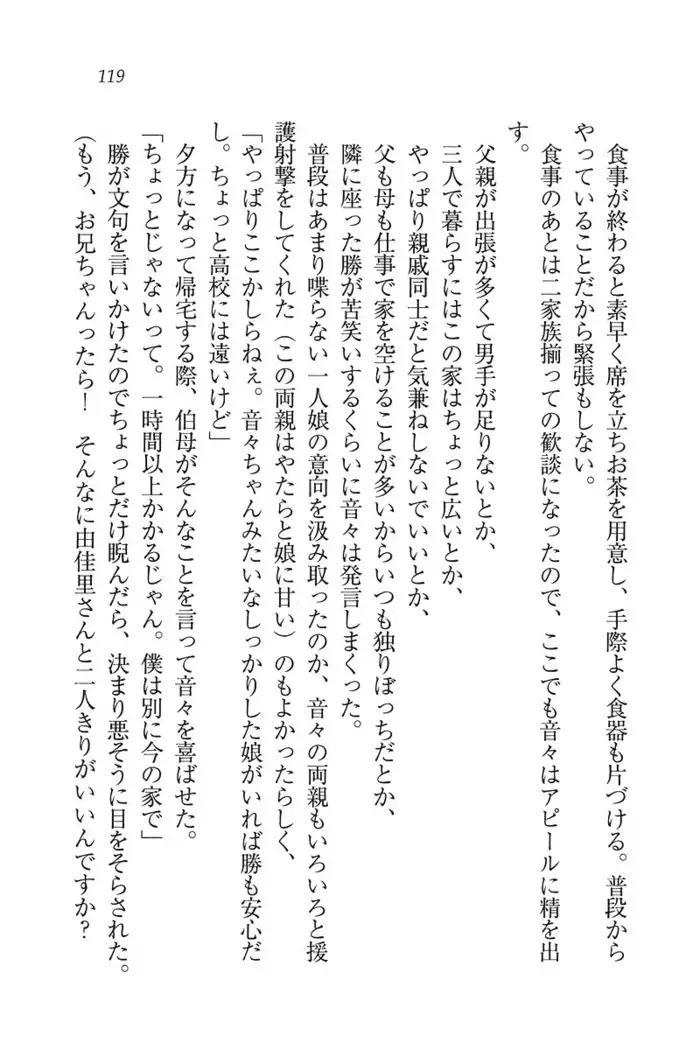 119
食事が終わると素早く席を立ちお茶を用意し、手際よく食器も片づける。普段から
やっていることだから緊張もしない。
食事のあとは二家族揃っての歓談になったので、ここでも音々はアピールに精を出
す。
父親が出張が多くて男手が足りないとか、
三人で暮らすにはこの家はちょっと広いとか、
やっぱり親戚同士だと気兼ねしないでいいとか、
父も母も仕事で家を空けることが多いからいつも独りぼっちだとか、
隣に座った勝が苦笑いするくらいに音々は発言しまくった。
普段はあまり喋らない一人娘の意向を汲み取ったのか、音々の両親もいろいろと援
護射撃をしてくれた（この両親はやたらと娘に甘い）のもよかったらしく、
「やっぱりここかしらねぇ。音々ちゃんみたいなしっかりした娘がいれば勝も安心だ
し。ちょっと高校には遠いけど」
夕方になって帰宅する際、伯母がそんなことを言って音々を喜ばせた。
「ちょっとじゃないって。一時間以上かかるじゃん。僕は別に今の家で」
勝が文句を言いかけたのでちょっとだけ睨んだら、決まり悪そうに目をそらされた。
（もう、お兄ちゃんったら！　そんなに由佳里さんと二人きりがいいんですか？